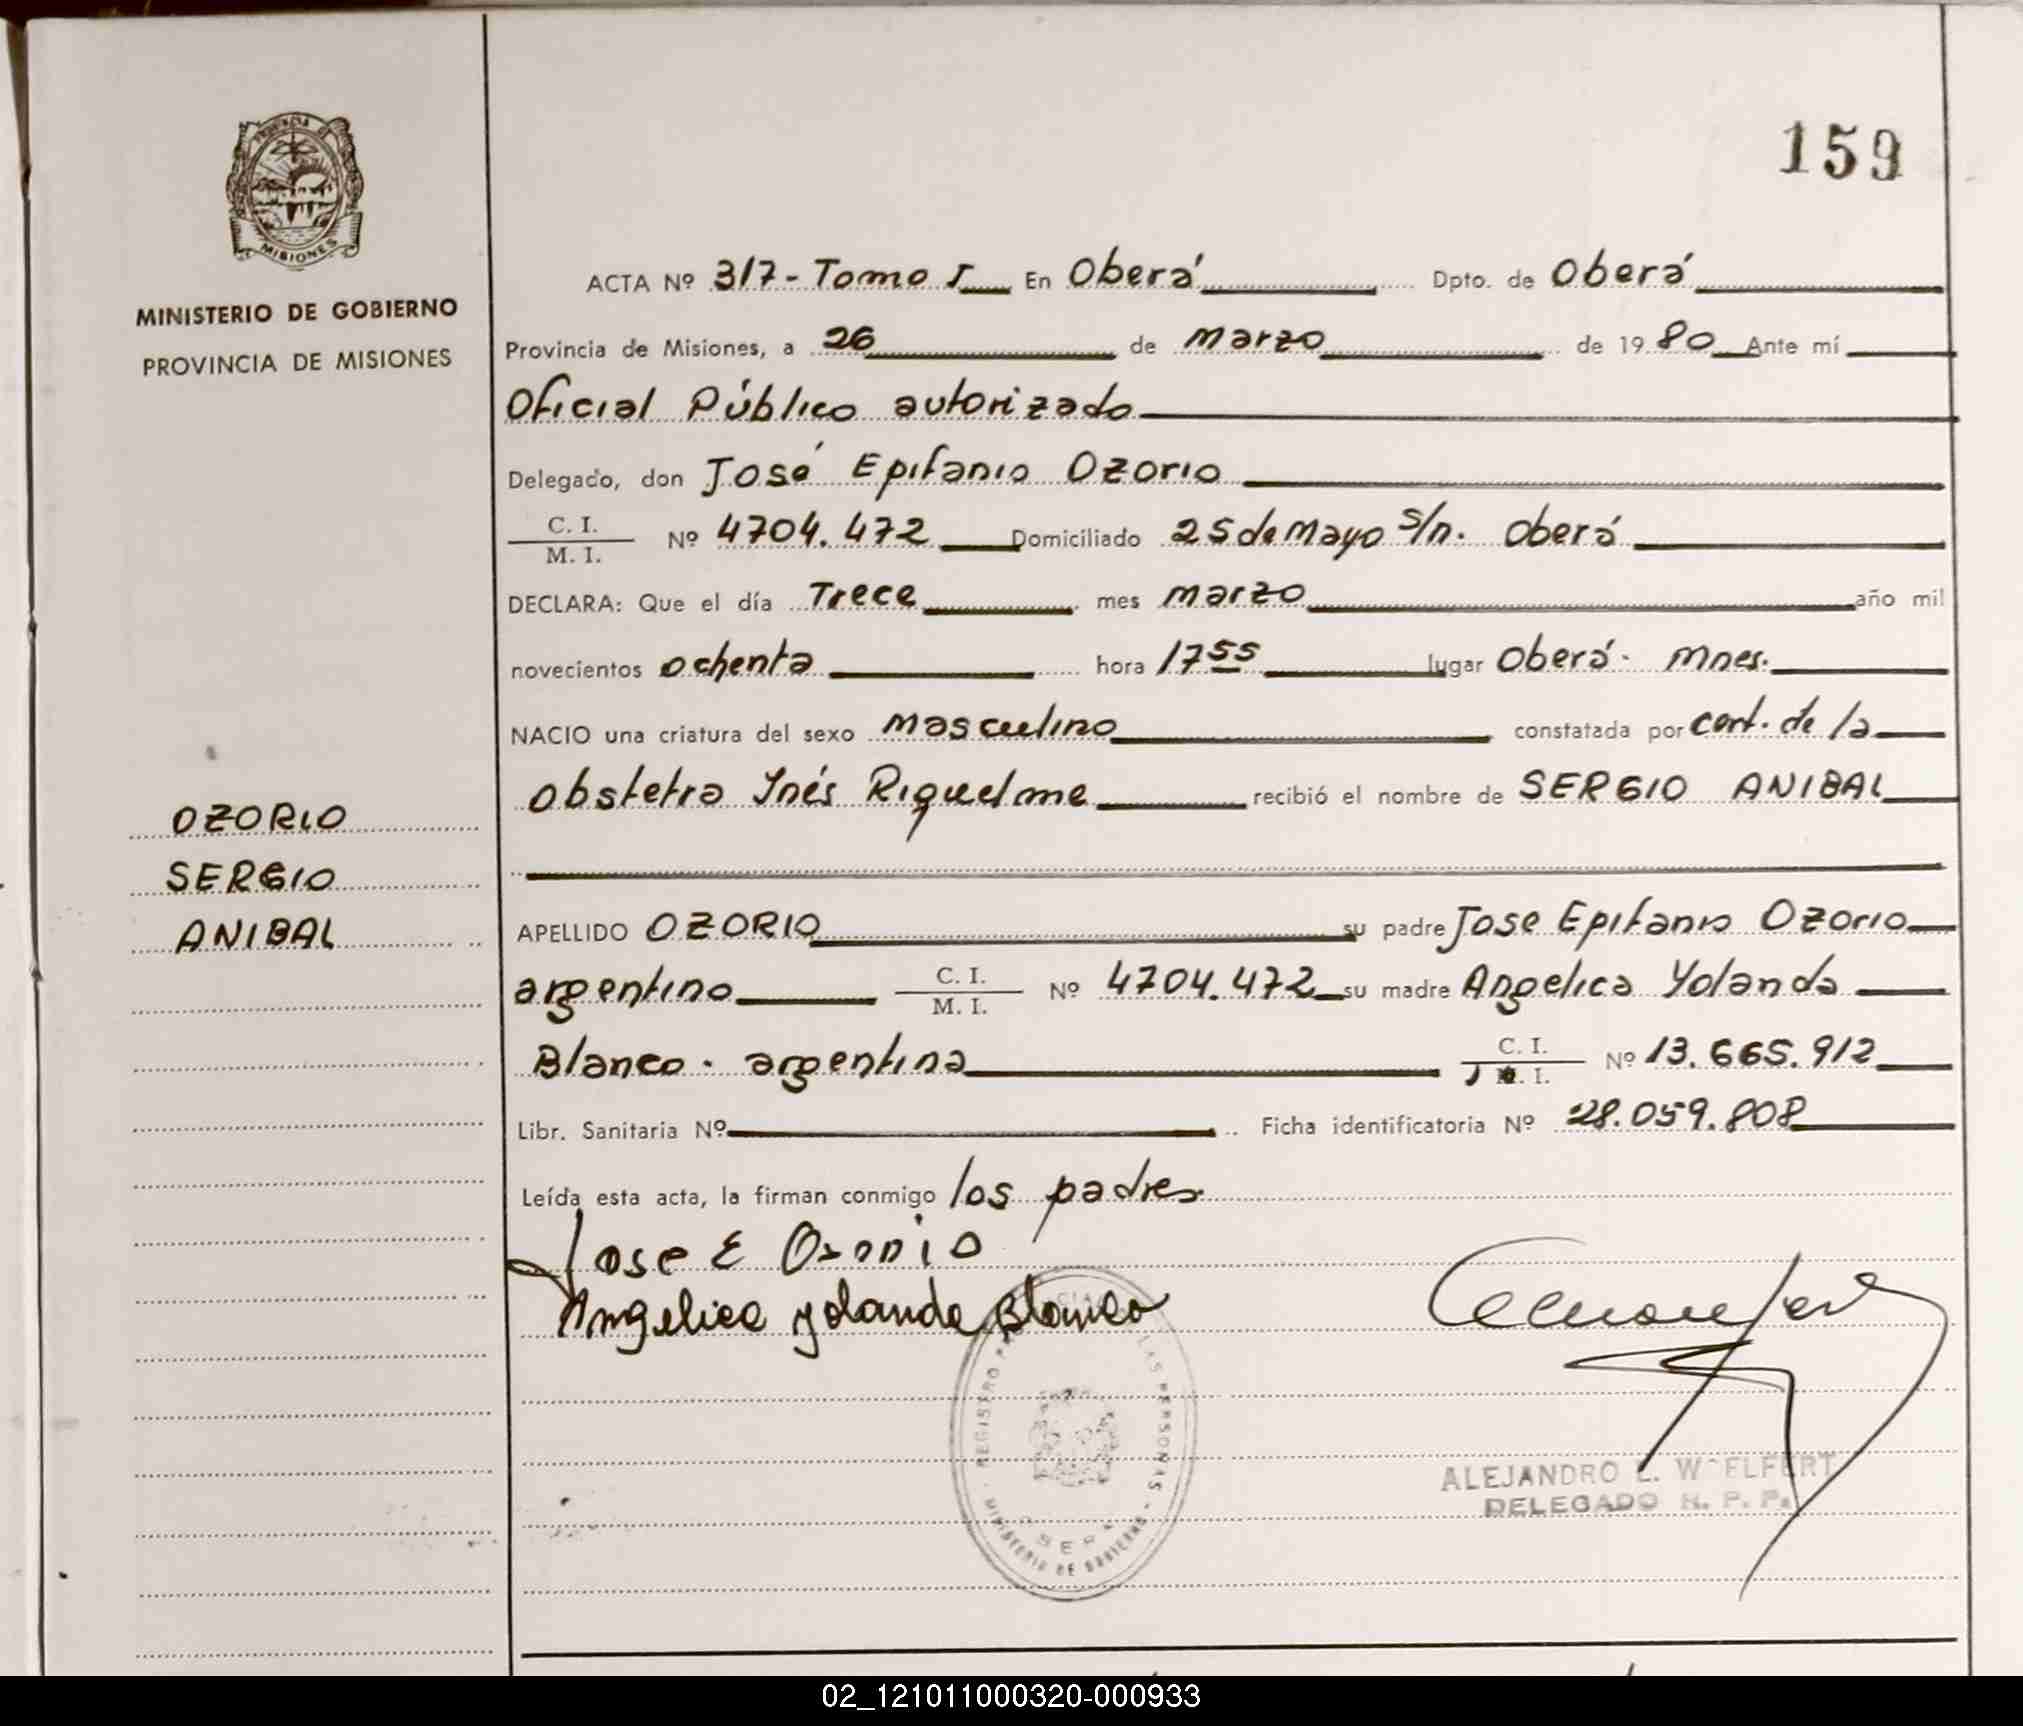 159
PROVINCIA DE
MISIONES
MINISTERIO DE GOBIERNO
PROVINCIA DE MISIONES
ACTA Nº 317 - Tomo I En Oberá Dpto. de Oberá
Provincia de Misiones, a 26 de marzo de 1980 Ante mí
Oficial Público autorizado
Delegado, don José Epifanio Ozorio
C. I.
M. I. Nº 4704.472 Domiciliado 25 de Mayo s/n. Oberá
DECLARA: Que el día Trece mes marzo año mil
novecientos ochenta hora 17 55 lugar Oberá - Mnes.
NACIO una criatura del sexo masculino constatada por cert. de la
Obstetra Inés Riquelme recibió el nombre de SERGIO ANIBAL
OZORIO
SERGIO
ANIBAL
APELLIDO OZORIO su padre Jose Epifanio Ozorio
argentino C. I.
M. I. Nº 4704.472 su madre Angelica Yolanda
Blanco - argentina C. I.
M. I. Nº 13.665.912
Libr. Sanitaria Nº Ficha identificatoria Nº 28.059.808
Leída esta acta, la firman conmigo los padres
Jose E Osorio
Angelica yolanda Blanco
REGISTRO LAS PERSONAS - MINISTERIO DE GOBIERNO
ALEJANDRO L. WOELFERT
DELEGADO R. P. P.
02_121011000320-000933